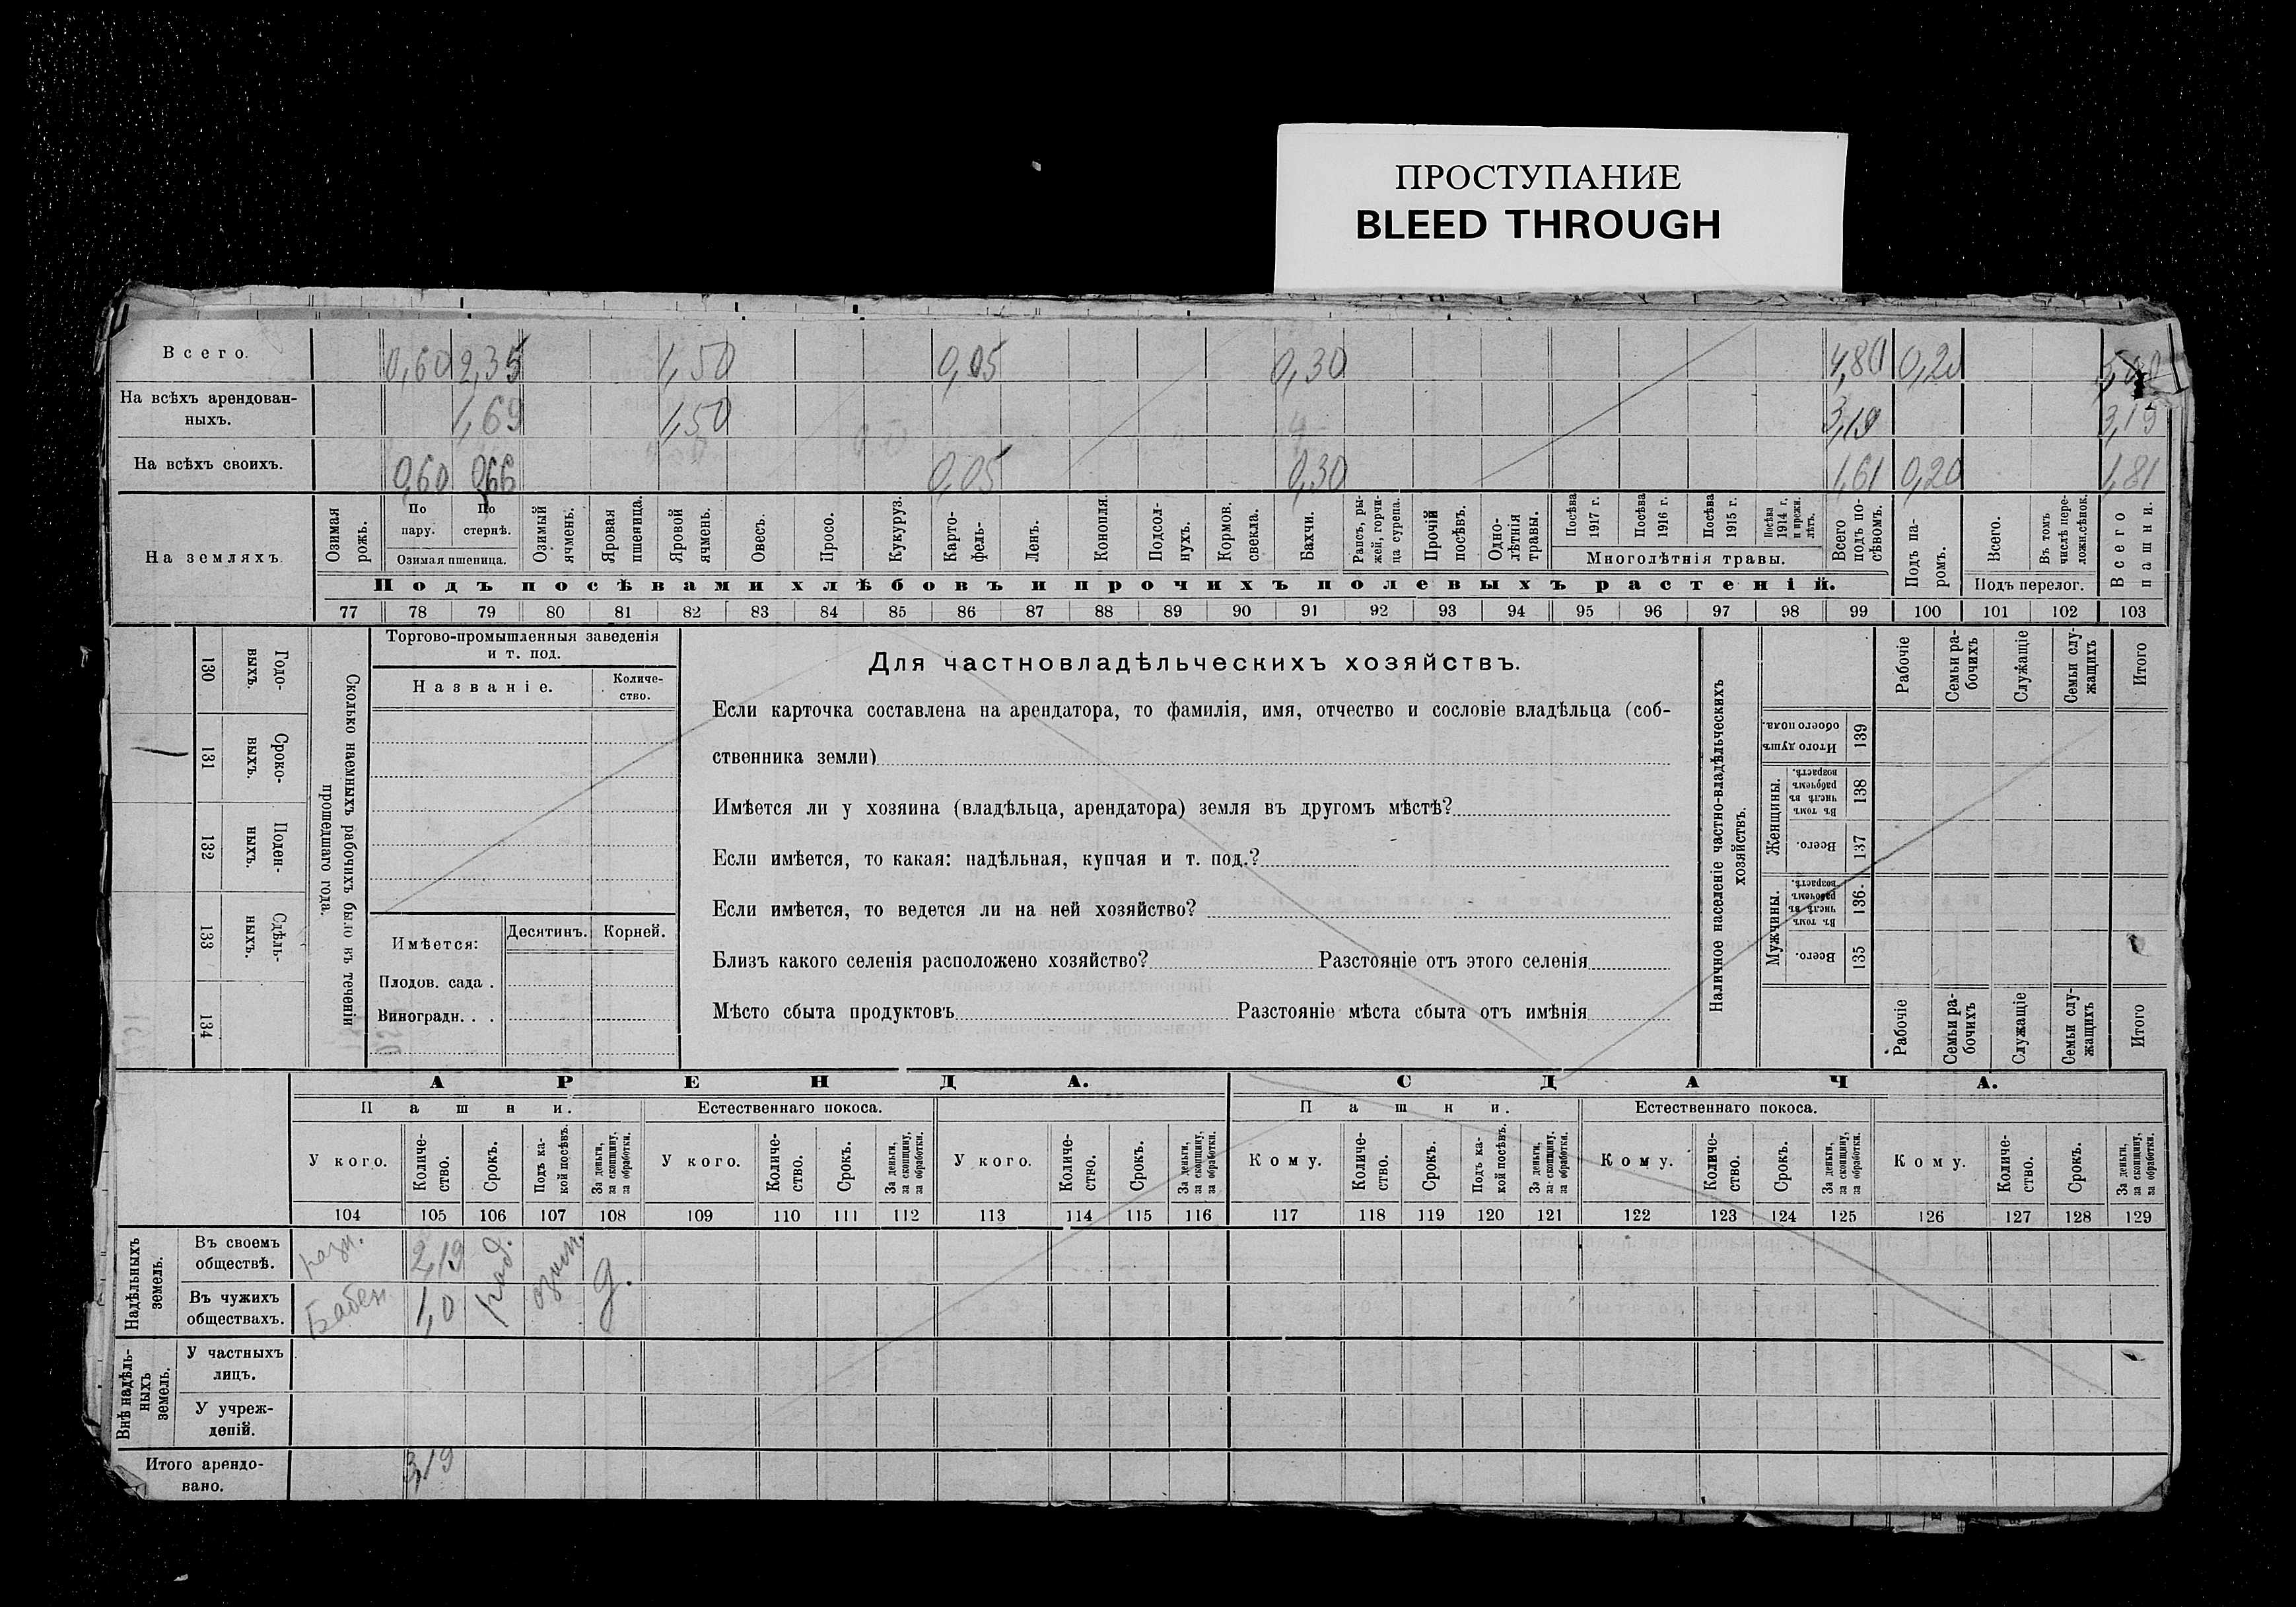 ПРОСТУПАНИЕ
BLEED THROUGH
Всего. 0,60 2,35 1,50 0,05 0,30 4,80 0,20
На всѣхъ арендован-
ныхъ. 1,69 1,50 3,19 3,19
На всѣхъ своихъ. 0,60 0,66 0,05 0,30 1,61 0,20 1,81
На земляхъ.
Озимая рожь.
По пару.
По стернѣ.
Озимая пшеница.
Озимый ячмень.
Яровая пшеница.
Яровой ячмень.
Овесъ.
Просо.
Кукуруз.
Карто-
фель-
Ленъ.
Конопля.
Подсол-
нухъ.
Кормов.
свекла.
Бахчи.
Рапсъ, ры-
жей, горчи-
ца сурепа.
Прочій
посѣвъ.
Одно-
лѣтнія
травы.
Посѣва
1917 г.
Посѣва
1916 г.
Посѣва
1915 г.
Посѣва
1914 г.
и прежн.
лѣтъ.
Многолѣтнія травы.
Всего
подъ по-
сѣвомъ.
Подъ па-
ромъ.
Всего.
Въ томъ
числѣ пере-
ложн.сѣнок.
Подъ перелог.
Всего
пашни.
Подъ посѣвами хлѣбовъ и прочихъ полевыхъ растеній.
77 78 79 80 81 82 83 84 85 86 87 88 89 90 91 92 93 94 95 96 97 98 99 100 101 102 103
130 Годо-
выхъ.
131 Сроко-
выхъ.
132 Поден-
ныхъ.
133 Сдѣль-
ныхъ.
134
Сколько наемныхъ рабочихъ было въ теченіи
прошедшаго года.
Торгово-промышленныя заведенія
и т. под.
Названіе.
Количе-
ство.
Имѣется:
Десятинъ.
Корней.
Плодов. сада .
Виноградн. . .
Для частновладѣльческихъ хозяйствъ.
Если карточка составлена на арендатора, то фамилія, имя, отчество и сословіе владѣльца (соб-
ственника земли)
Имѣется ли у хозяина (владѣльца, арендатора) земля въ другомъ мѣстѣ?
Если имѣется, то какая: надѣльная, купчая и т. под.?
Если имѣется, то ведется ли на ней хозяйство?
Близъ какого селенія расположено хозяйство? Разстояніе отъ этого селенія
Мѣсто сбыта продуктовъ Разстояніе мѣста сбыта отъ имѣнія
Наличное населеніе частно-владѣльческихъ
хозяйствъ.
Рабочіе
Семьи ра-
бочихъ
Служащіе
Семьи слу-
жащихъ
Итого
Итого душъ
обоего пола.
139
Женщины.
Въ томъ
числѣ въ
рабочемъ
возрастѣ.
138
Всего.
137
Мужчины.
Въ томъ
числѣ въ
рабочемъ
возрастѣ.
136.
Всего.
135
Рабочіе
Семьи ра-
бочихъ
Служащіе
Семьи слу-
жащихъ
Итого
АРЕНДА.
СДАЧА.
Пашни.
Естественнаго покоса.
Пашни.
Естественнаго покоса.
У кого.
Количе-
ство.
Срокъ.
Подъ ка-
кой посѣвъ.
За деньги,
за скопщину,
за обработки.
У кого.
Количе-
ство.
Срокъ.
За деньги,
за скопщину,
за обработки.
У кого.
Количе-
ство.
Срокъ.
За деньги,
за скопщину,
за обработки.
Кому.
Количе-
ство.
Срокъ.
Подъ ка-
кой посѣвъ.
За деньги,
за скопщину,
за обработки.
Кому.
Количе-
ство.
Срокъ.
За деньги,
за скопщину,
за обработки.
Кому.
Количе-
ство.
Срокъ.
За деньги,
за скопщину,
за обработки.
104 105 106 107 108 109 110 111 112 113 114 115 116 117 118 119 120 121 122 123 124 125 126 127 128 129
Надѣльныхъ
земель.
Въ своемъ
обществѣ. разн. 2,19
Въ чужихъ
обществахъ. Бабен. 1,0 д.
Внѣ надѣль-
ныхъ
земель.
У частныхъ
лицъ.
У учреж-
деній.
Итого арендо-
вано. 3,19